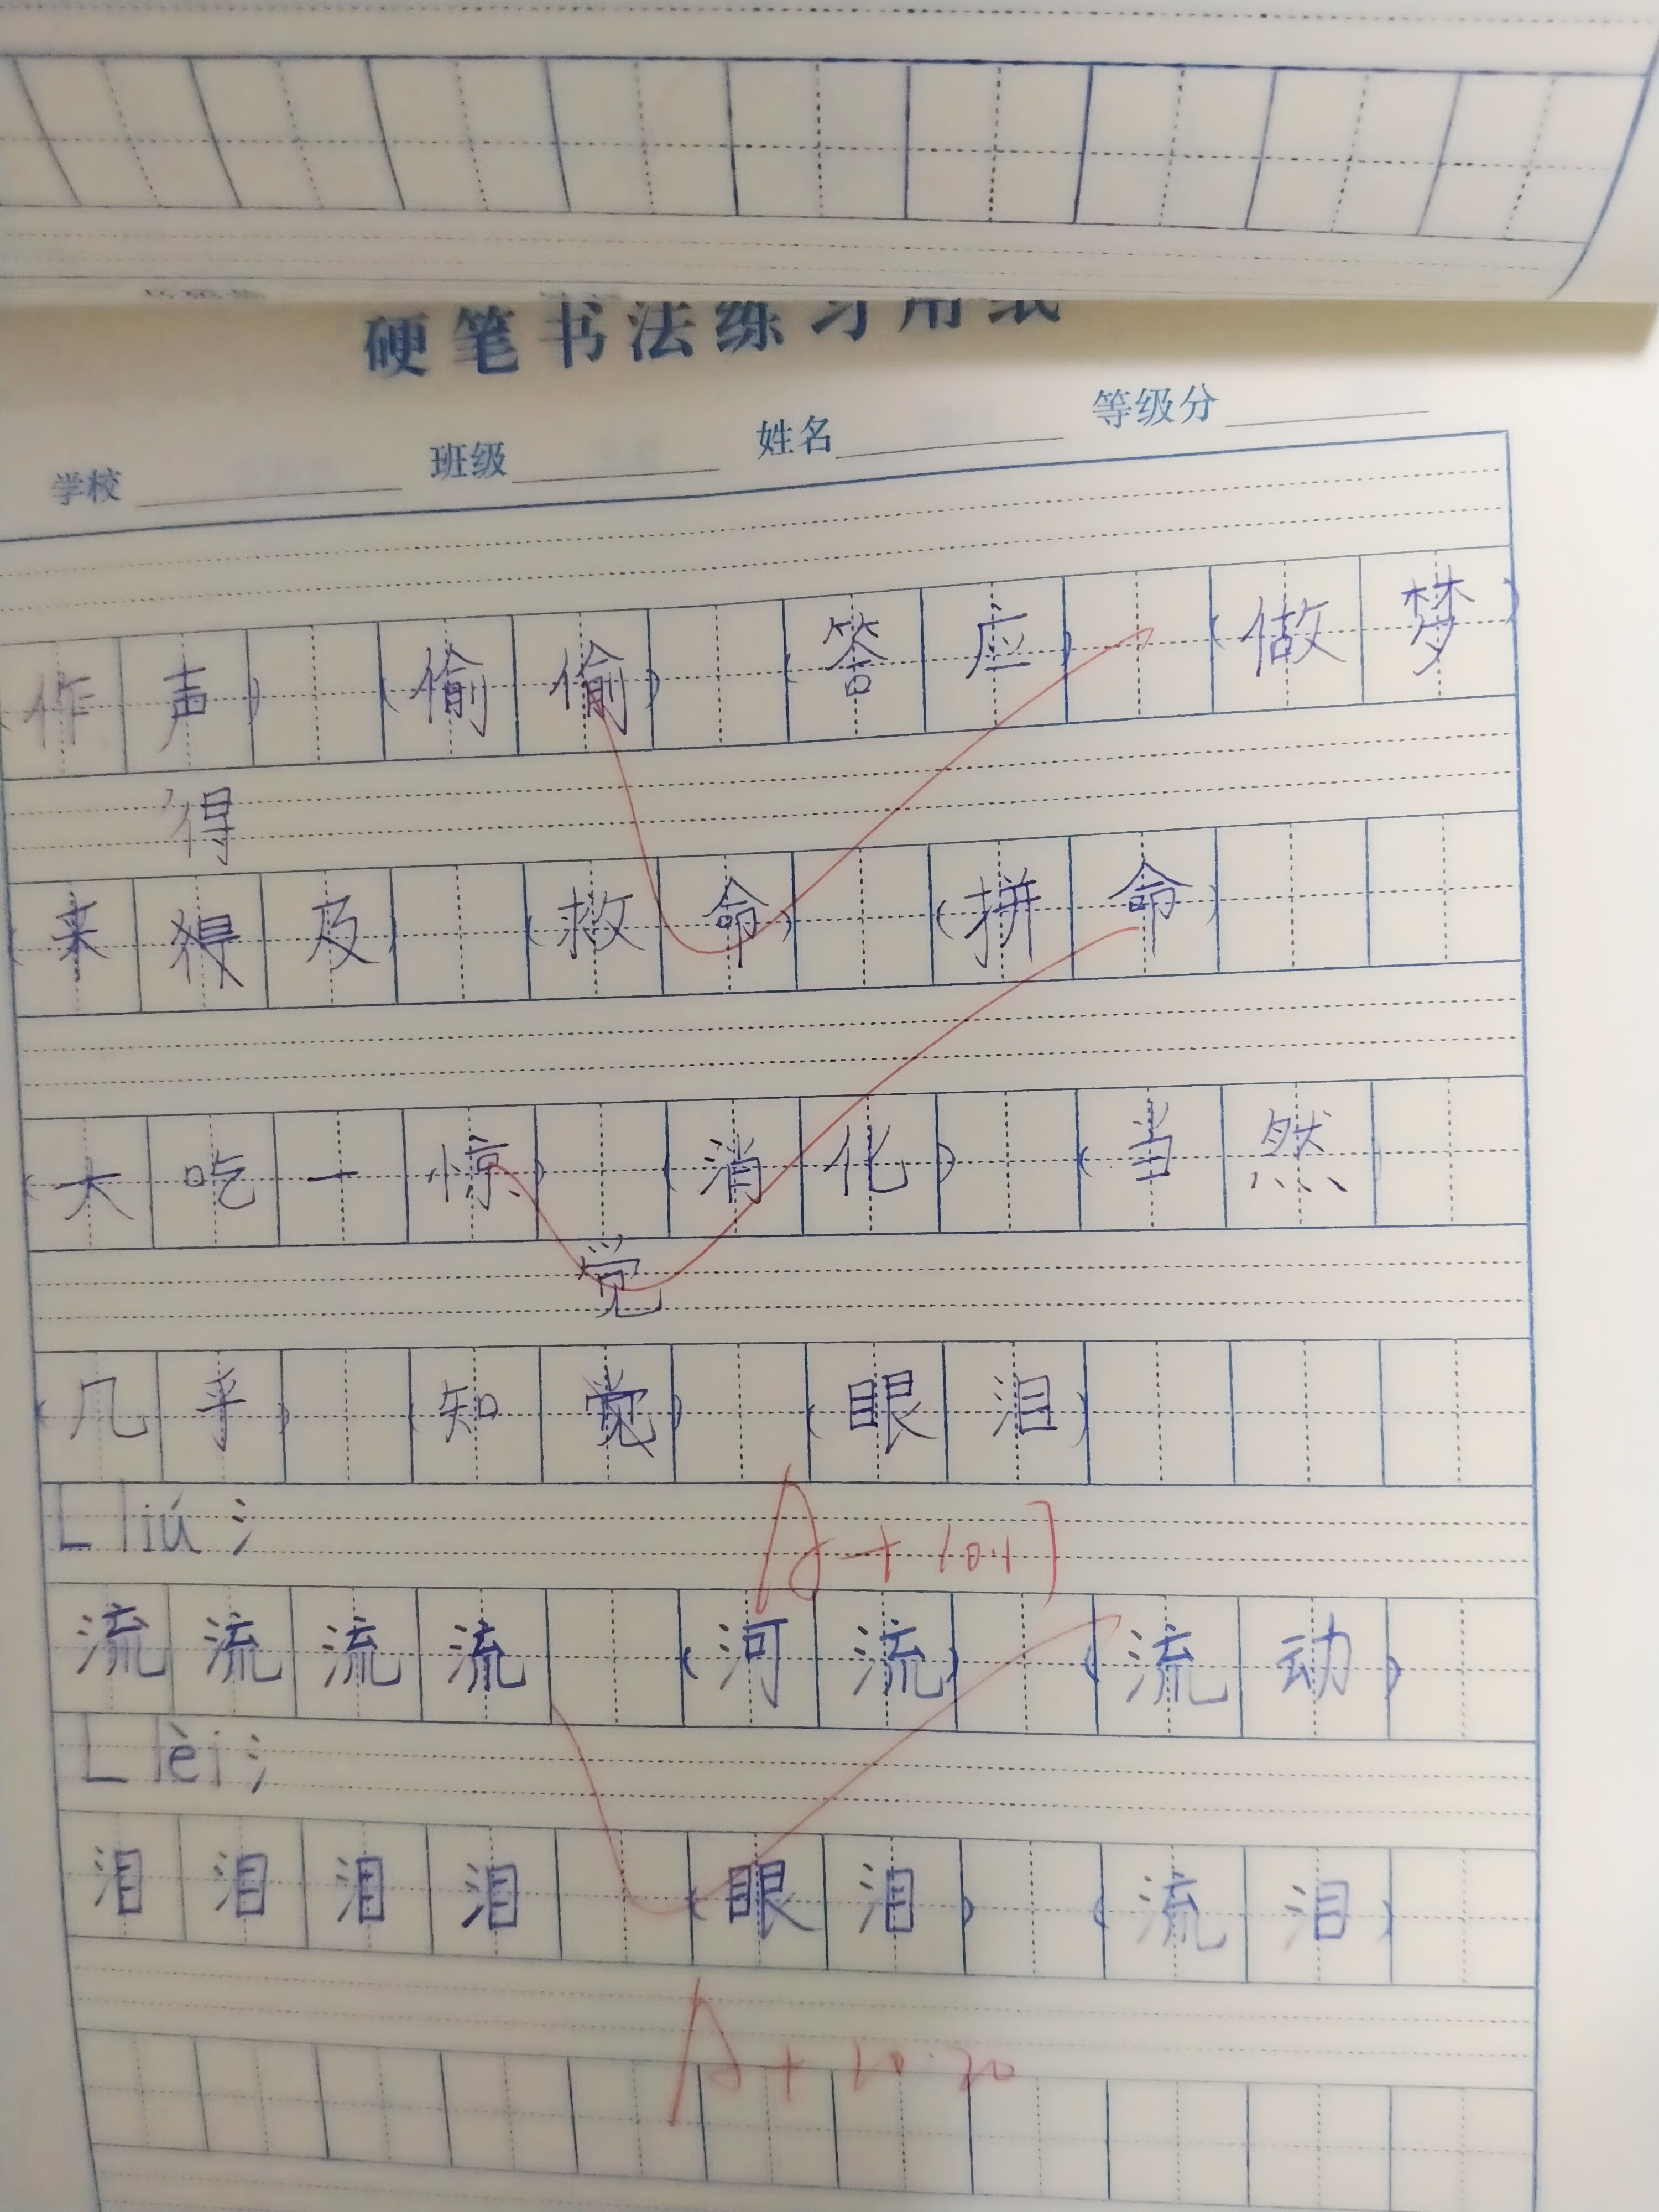 硬笔书法练习用纸
学校 班级 姓名 等级分
(作声) (偷偷) (答应) (做梦)
得
(来得及) (救命) (拼命)
(大吃一惊) (消化) (当然)
觉
(几乎) (知觉) (眼泪)
L liú 氵
A+ 10.17
流流流流 (河流) (流动)
L lèi 氵
泪泪泪泪 (眼泪) (流泪)
A+ 10.20